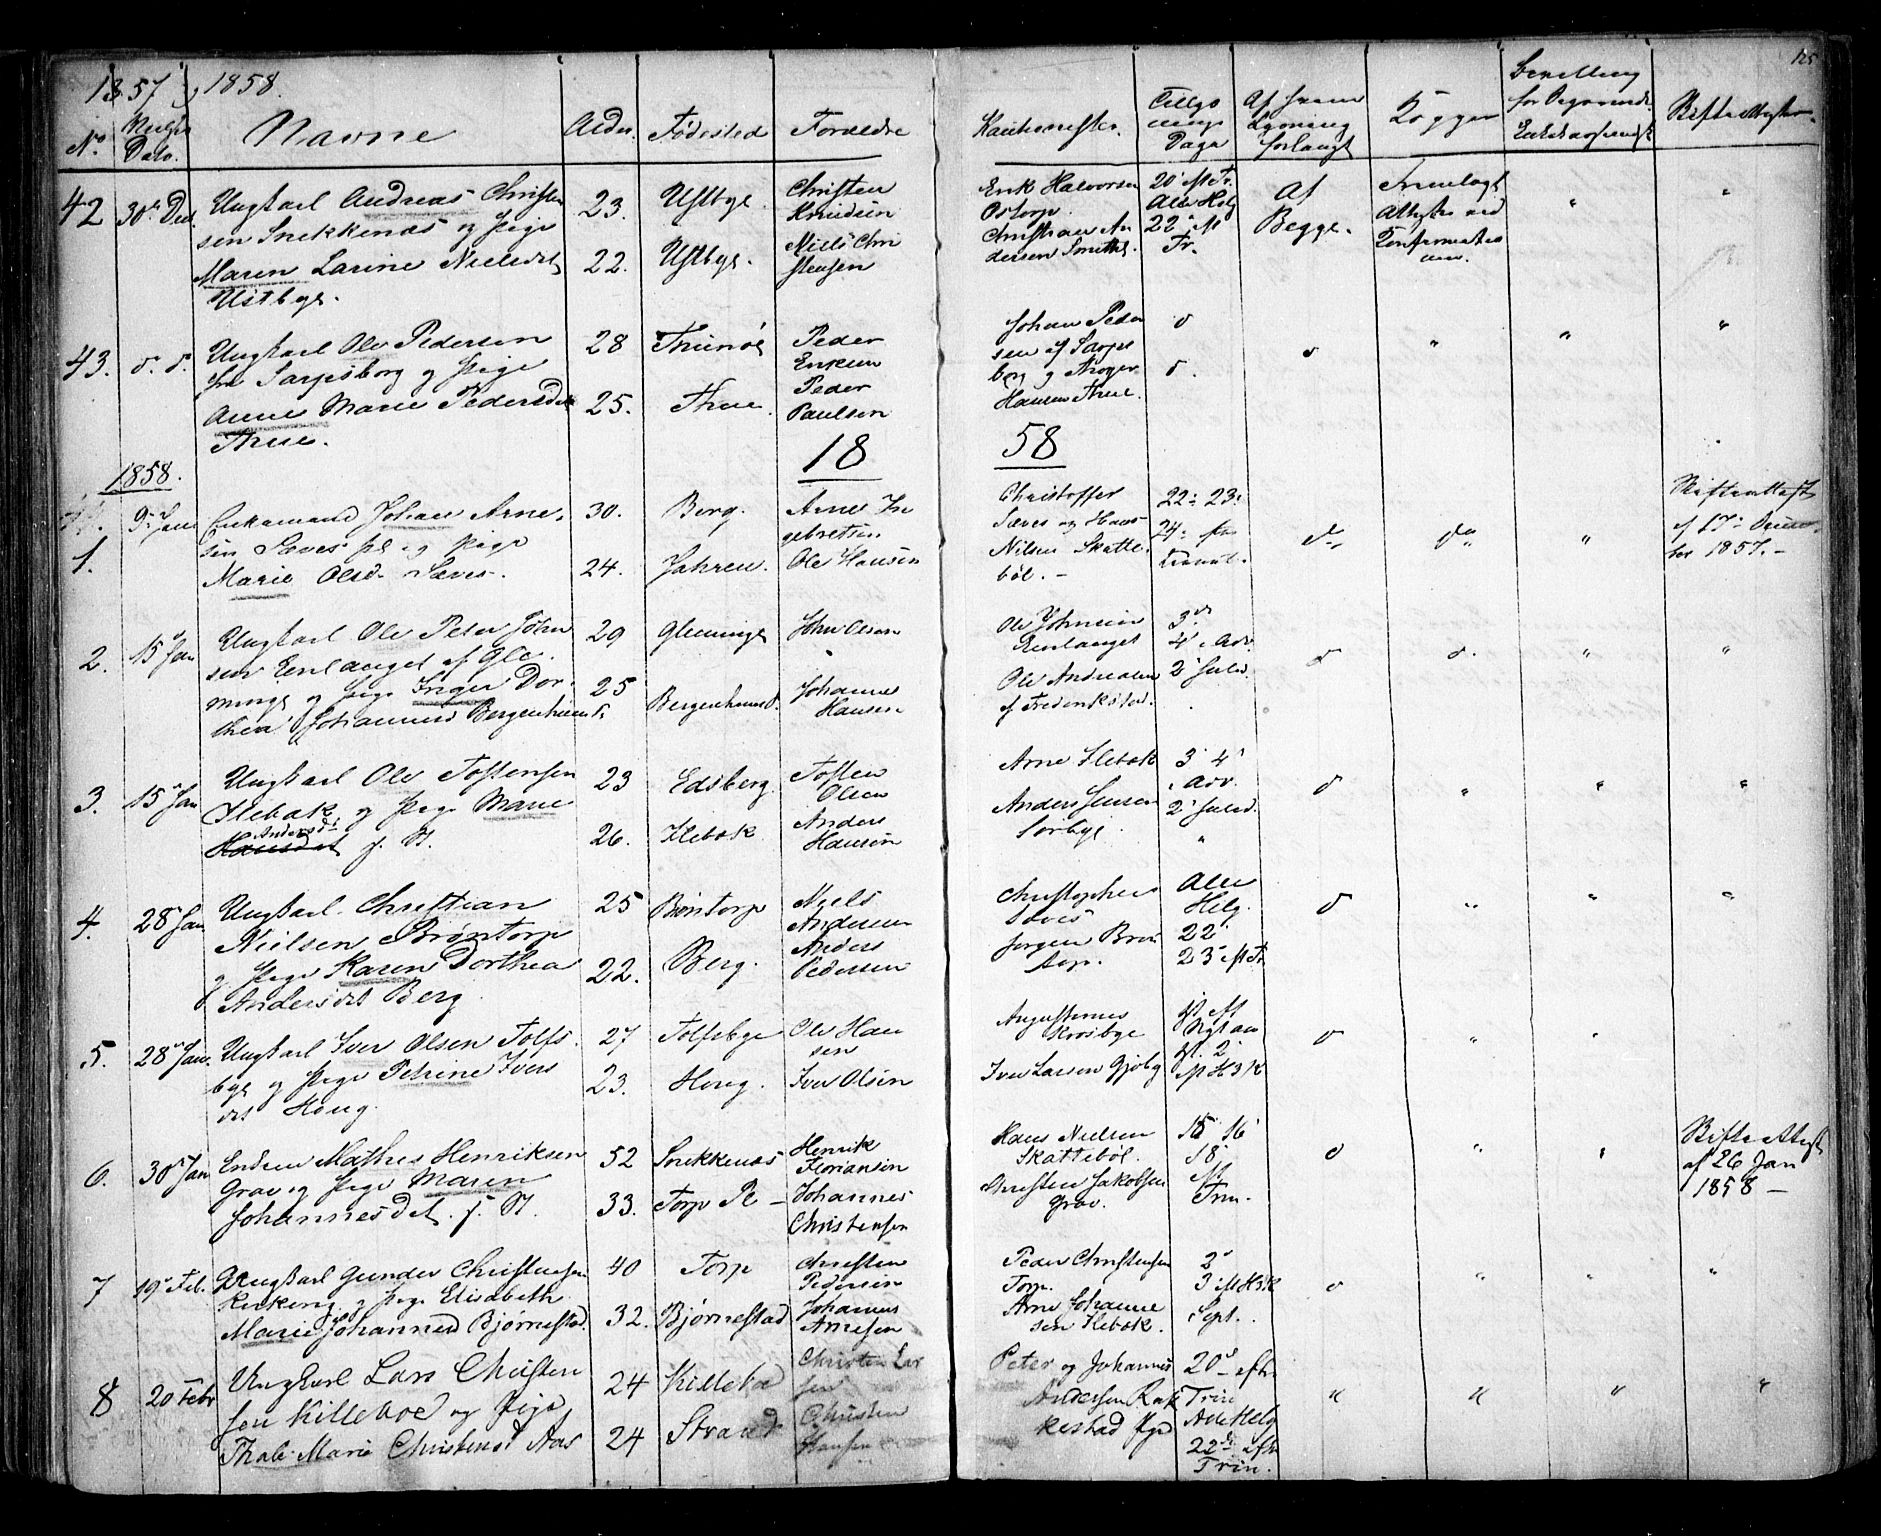 125
1857, 1858.
No.
Dato.
Navne
Alder.
Fødested
Forældre
Kautionister.
Tillys
nings
Dage
Af hvem
Lysning
forlangt
Kopper
Bevilling
Skifte Attester
42 30te Dec.
Ungkarl Andreas Christen
sen Snekkenæs og Pige
Maren Larine Nielsdat
Ustbye.
23. Ustbye.
22. Ustbye.
Christen
Knudsen
Niels Chri
stensen
Erik Halvorsen
Ostorp.
Christian An
dersen Smithe.
20 " M Tr.
Alle Helg
22 " M
Tr.
Af
Begge.
Fremlagt
Attester ved
Konfirmatio
nen.
" "
43. d. d.
Ungkarl Ole Pedersen
fra Sarpsborg og Pige
Anne Marie Pedersdat
Thue.
28 Thunøe
25. Thue.
Peder
Eriksen
Peder
Paulsen
Johan Peder
sen af Sarps
borg og Asger
Hansen Thue.
d
d.
d " " "
18 58
1858.
1. 9de Jan
Enkemand Johan Arne-
sen Sæves pl og Pige
Marie Olsd. Sæves.
30. Berg.
24. Jahren.
Arne In
gebretsen
Ole Hansen
Christoffer
Sæves og Hans
Nilsen Skatte-
böl. -
22: 23:
24
do do "
Skifteattest
af 17: Decem
ber 1857. -
2. 15 Jan
Ungkarl Ole Peter John
sen Eenlanget af Gle
minge og Pige Inger Dor-
thea Johannesd Bergenhuus
29 Glemminge
25 Bergenhuus
John Olsen
Johannes
Hansen
Ole Johnsen
Eenlanget
Ole Andreasen
af Frederikstad.
3de
4 " Adv.
2 " Juled.
d d. " "
3. 15 Jan
Ungkarl Ole Tostensen
Ilebæk og Pige Marie
Andersd:
Hansdat j. St.
23 Edsberg
26. Ilebæk
Tosten
Olsen
Anders
Hansen
Arne Ilebæk
Anders Jensen
Sørbye.
3 4
" Adv.
2 " Juled.
"
d " " "
4. 28 Jan
Ungkarl Christian
Nielsen Brøntorp
og Pige Karen Dorthea
Andersdt Berg.
25 Brøntorp
22. Berg.
Niels
Andersen
Anders
Pedersen
Christopher
Sæves
Jørgen Brøn
torp.
Alle
Helg.
22
23 " M Tr.
d " " "
5. 28 Jan.
Ungkarl Iver Olsen Tolfs
bye og Pige Petrine Ivers
dt Houg.
27 Tolfsbye
23. Houg.
Ole Han
sen
Iver Olsen
Augustenus
Korsbye
Iver Larsen Gjøbÿ
Nytaar
2
M H3K
d " "
6. 30 Jan
Enkem Mathis Henriksen
Grav og Pige Maren
Johannesdat. j. St.
52 Snekkenæs
33. Torp Pl -
Henrik
Floriansen
Johannes
Christensen
Hans Nielsen
Skattebøl.
Christen Jakobsen
Grav.
15 16
18
M
Trin.
d " "
Skifte Attest
af 26 Jan
1858 -
7 19 Feb.
Ungkarl Gunder Christensen
Kirkeng og Pige Elisabeth
Marie Johannesd Bjørnestad.
40 Torp
32. Bjørnestad
Christen
Pedersen
Johannes
Arnesen
Peder Christensen
Torp.
Arne Johanne
sen Ilebæk.
2
3 " M H3K
Sept.
d " " "
8 20 Febr
Ungkarl Lars Christen
sen Killeboe og Pige
Thale Marie Christensd Aas
24 Killebo
24 Strand
Christen Lar
sen
Christen
Hansen
Peter og Johannes
Andersen Rak
kestad Pgd
20de efter
Trin
Alle Helg
22de efter
Trin.
" " " "